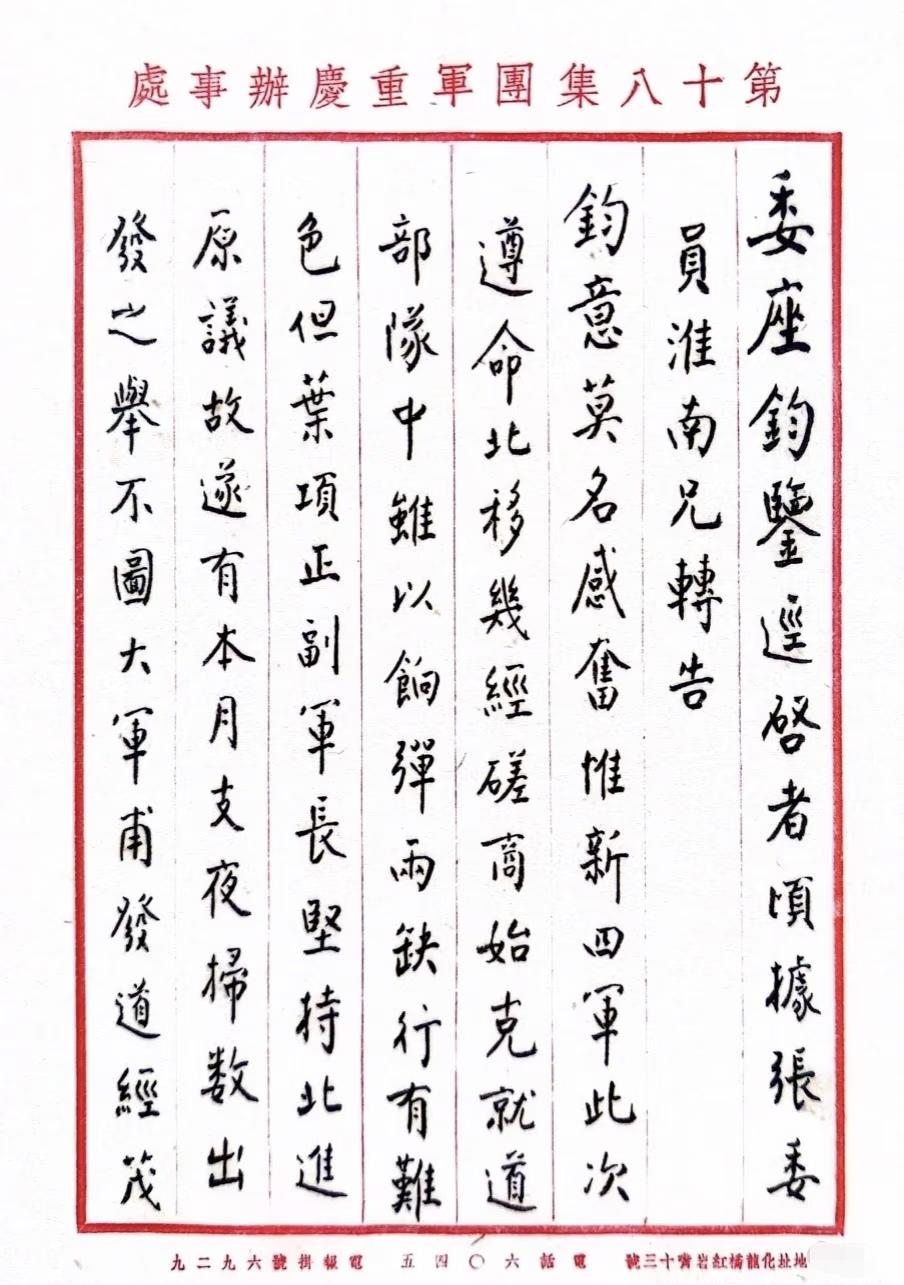 第十八集團軍重慶辦事處
委座鈞鑒逕啓者頃據張委
員淮南兄轉告
鈞意莫名感奮惟新四軍此次
遵命北移幾經磋商始克就道
部隊中雖以餉彈兩缺行有難
色但葉項正副軍長堅持北進
原議故遂有本月支夜掃数出
發之舉不圖大軍甫發道經茂
地址化龍橋紅岩嘴十三號 電話六〇四五 電報掛號六九二九